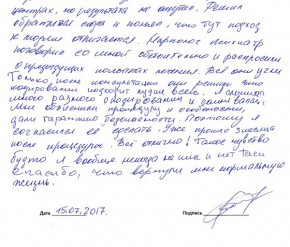 центрах, но результата не ощутил. Решил
обратиться сюда и понял, что тут подход
к людям отличается. Нарколог психиатр
поговорил со мной обстоятельно и расспросил
о предыдущих попытках лечения. Всё оценил.
Только после консультации они решили что
кодирование подходит лучше всего. Я слышал
много разного о кодировании и сомневался.
Мне объяснили процедуру и особенности,
дали гарантию безопасности. Поэтому я
согласился её сделать. Уже прошло 3 месяца
после процедуры. Всё отлично! Такое чувство
будто я вообще никогда не пил и нет тяги
Спасибо, что вернули мне нормальную
жизнь.
Дата 15.07.2017. Подпись